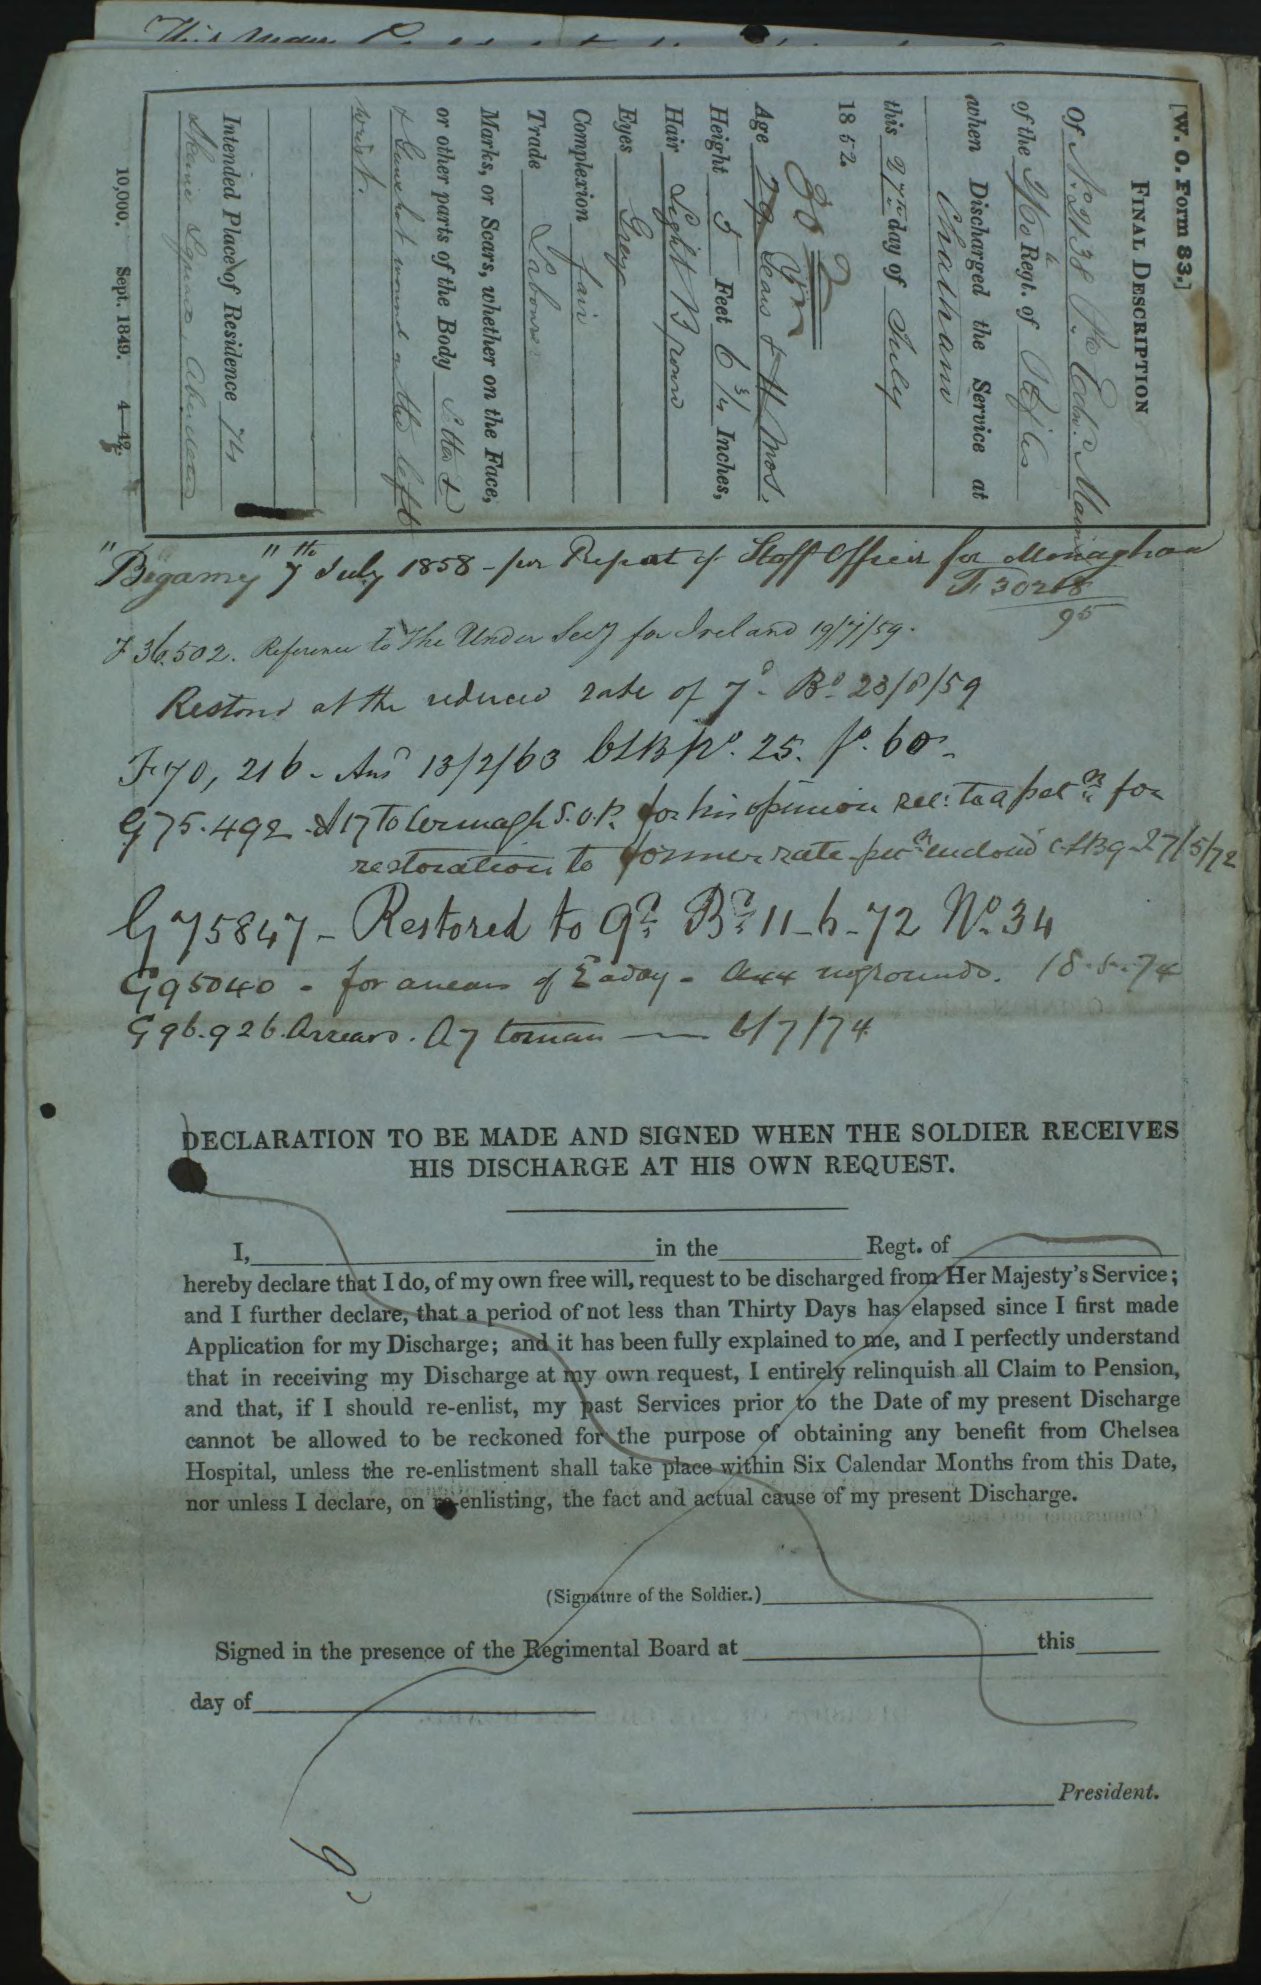 [W. O. Form 83.]
FINAL DESCRIPTION
Of No. 2138 Pte. Edw.
of the 60th Regt. of Rifles
when Discharged the Service at
Chatham
this 27th day of July
1852.
30
Age 29 Years & 11 Mos.
Height 5 Feet 6 3/4 Inches,
Hair Light Brown
Eyes Grey
Complexion fair
Trade Labourer
Marks, or Scars, whether on the Face,
or other parts of the Body
Gunshot wound on the left
wrist.
Intended Place of Residence 74
Skene Square, Aberdeen
10,000. Sept. 1849. 4—42.
"Bigamy" 7th July 1858 - per Report of Staff Officer for Monaghan
F 30218
95
F 36.502. Reference to The Under Secy for Ireland 19/7/59.
Restored at the reduced rate of 7d. Bd. 23/8/59
F 70,216 - Ansd 13/2/63 No. 25. fo. 60
G 75.492 A 17 to Armagh S.O.P. for his opinion rel: to a petn. for
restoration to former rate petn. enclosed 27/5/72
G 75847 - Restored to 9d. Bd. 11-6-72 No. 34
G 95040 - for arrears of a day - no grounds. 18.5.74
G 96.926. Arrears. A 7 to man — 6/7/74
DECLARATION TO BE MADE AND SIGNED WHEN THE SOLDIER RECEIVES
HIS DISCHARGE AT HIS OWN REQUEST.
I, in the Regt. of
hereby declare that I do, of my own free will, request to be discharged from Her Majesty's Service;
and I further declare, that a period of not less than Thirty Days has elapsed since I first made
Application for my Discharge; and it has been fully explained to me, and I perfectly understand
that in receiving my Discharge at my own request, I entirely relinquish all Claim to Pension,
and that, if I should re-enlist, my past Services prior to the Date of my present Discharge
cannot be allowed to be reckoned for the purpose of obtaining any benefit from Chelsea
Hospital, unless the re-enlistment shall take place within Six Calendar Months from this Date,
nor unless I declare, on re-enlisting, the fact and actual cause of my present Discharge.
(Signature of the Soldier.)
Signed in the presence of the Regimental Board at this
day of
President.